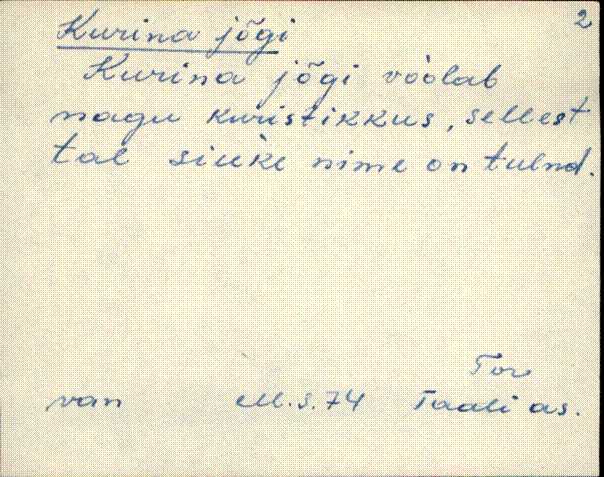 2
Kurina jõgi
Kurina jõgi voolab
nagu kuristikkus, sellest
tal siuke nime on tulnd.
Tor
van M.S.74 Taali as.